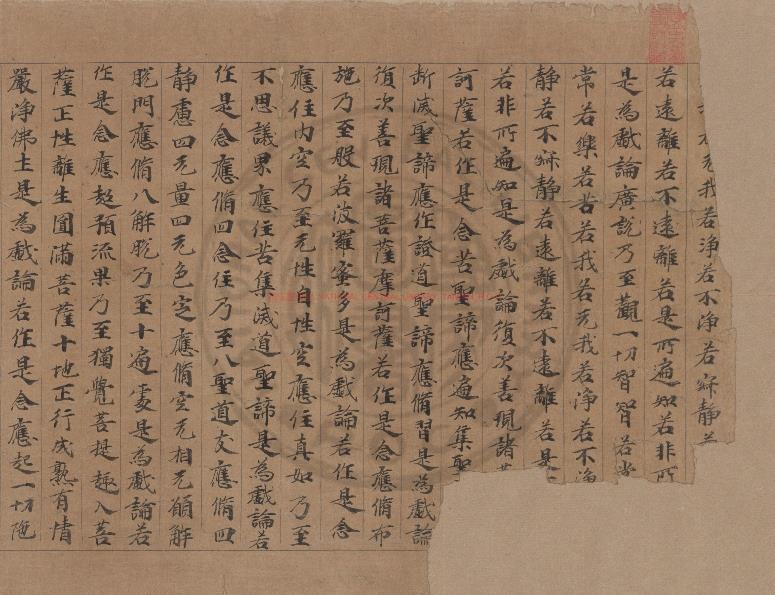 无我若淨若不淨若寂静若
若遠離若不遠離若是所遍知若非所
是為戲論廣說乃至觀一切智智若常
常若樂若苦若我若无我若淨若不淨
静若不寂静若遠離若不遠離若是
若非所遍知是為戲論復次善現諸菩
訶薩若作是念苦聖諦應遍知集聖
断滅聖諦應作證道聖諦應脩習是為戲論
復次善現諸菩薩摩訶薩若作是念應脩布
施乃至般若波羅蜜多是為戲論若作是念
應住内空乃至无性自性空應住真如乃至
不思議界應住苦集滅道聖諦是為戲論若
作是念應脩四念住乃至八聖道支應脩四
静慮四无量四无色定應脩空无相无願解
脱門應脩八解脱乃至十遍處是為戲論若
作是念應超預流果乃至獨覺菩提趣入菩
薩正性離生圓滿菩薩十地正行成熟有情
嚴淨佛土是為戲論若作是念應起一切陁